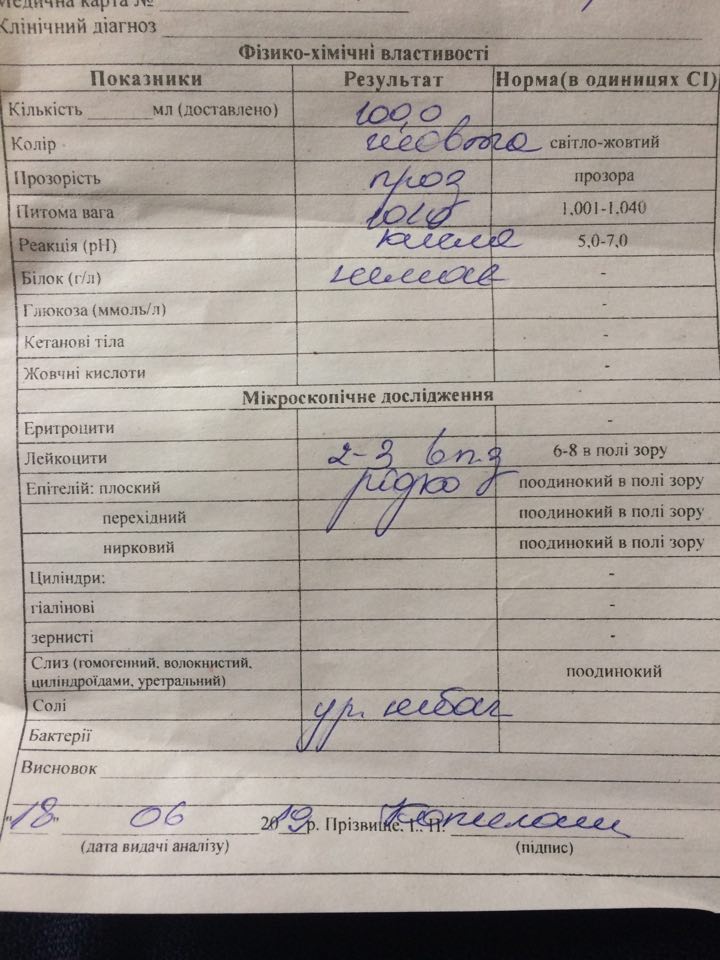 Медична карта №
Клінічний діагноз
Фізико-хімічні властивості
Показники Результат Норма(в одиницях СІ)
Кількість ______ мл (доставлено) 100,0
Колір жовта світло-жовтий
Прозорість проз прозора
Питома вага 1,001-1,040
Реакція (рН) кисла 5,0-7,0
Білок (г/л) немає -
Глюкоза (ммоль/л) -
Кетанові тіла -
Жовчні кислоти -
Мікроскопічне дослідження
Еритроцити -
Лейкоцити 2-3 в п.з 6-8 в полі зору
Епітелій: плоский рідко поодинокий в полі зору
перехідний поодинокий в полі зору
нирковий поодинокий в полі зору
Циліндри: -
гіалінові -
зернисті -
Слиз (гомогенний, волокнистий,
циліндроїдами, уретральний) поодинокий
Солі ур. небаг
Бактерії
Висновок
"18" 06 2019р. Прізвище, І., П.
(дата видачі аналізу) (підпис)